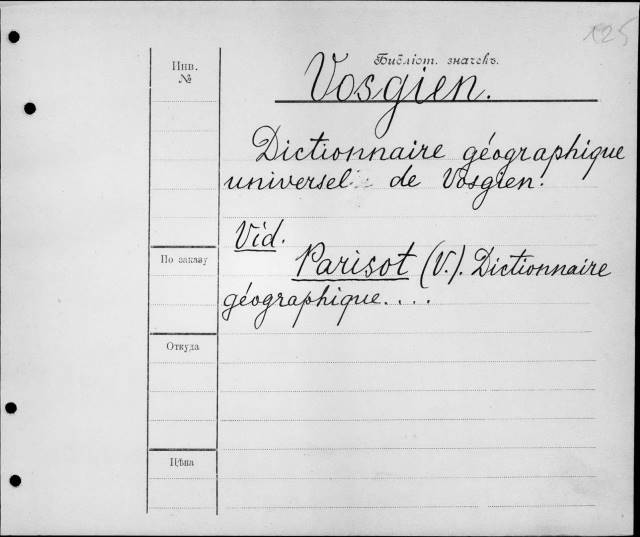 125
Библіот. значекъ.
Инв.
№
Vosgien.
Dictionnaire géographique
universel de Vosgien.
Vid.
Parisot (V.). Dictionnaire
géographique....
По заказу
Откуда
Цѣна